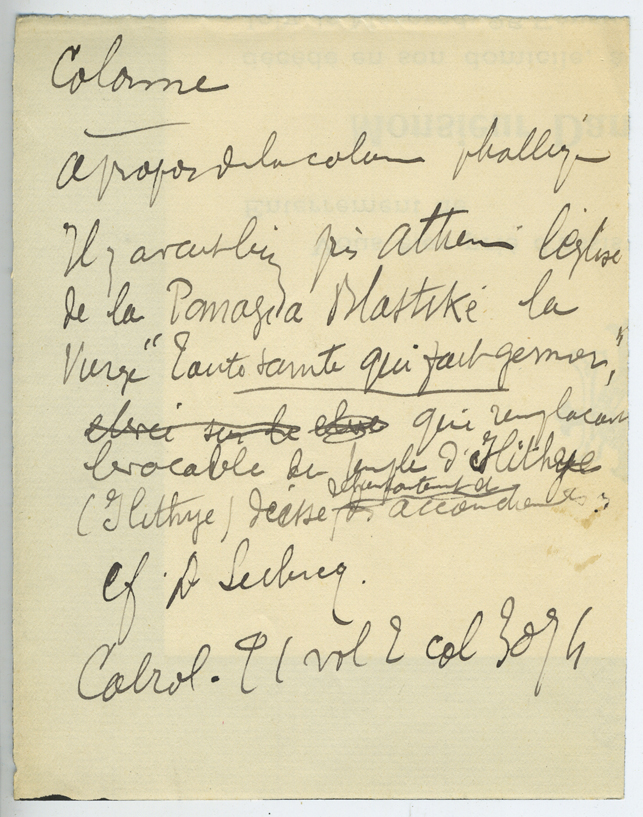 Colonne
à propos de la colonne phallique
Il y avait bien près Athènes l'église
de la Panagia Blastiké la
Vierge "Toute sainte qui fait germer,"
élevée sur le qui remplaçait
le vocable du temple d'Ilithye
(Ilithye) déesse
des accouchements
cf. D Leclercq.
Cabrol. T 1 vol 2 col 3074